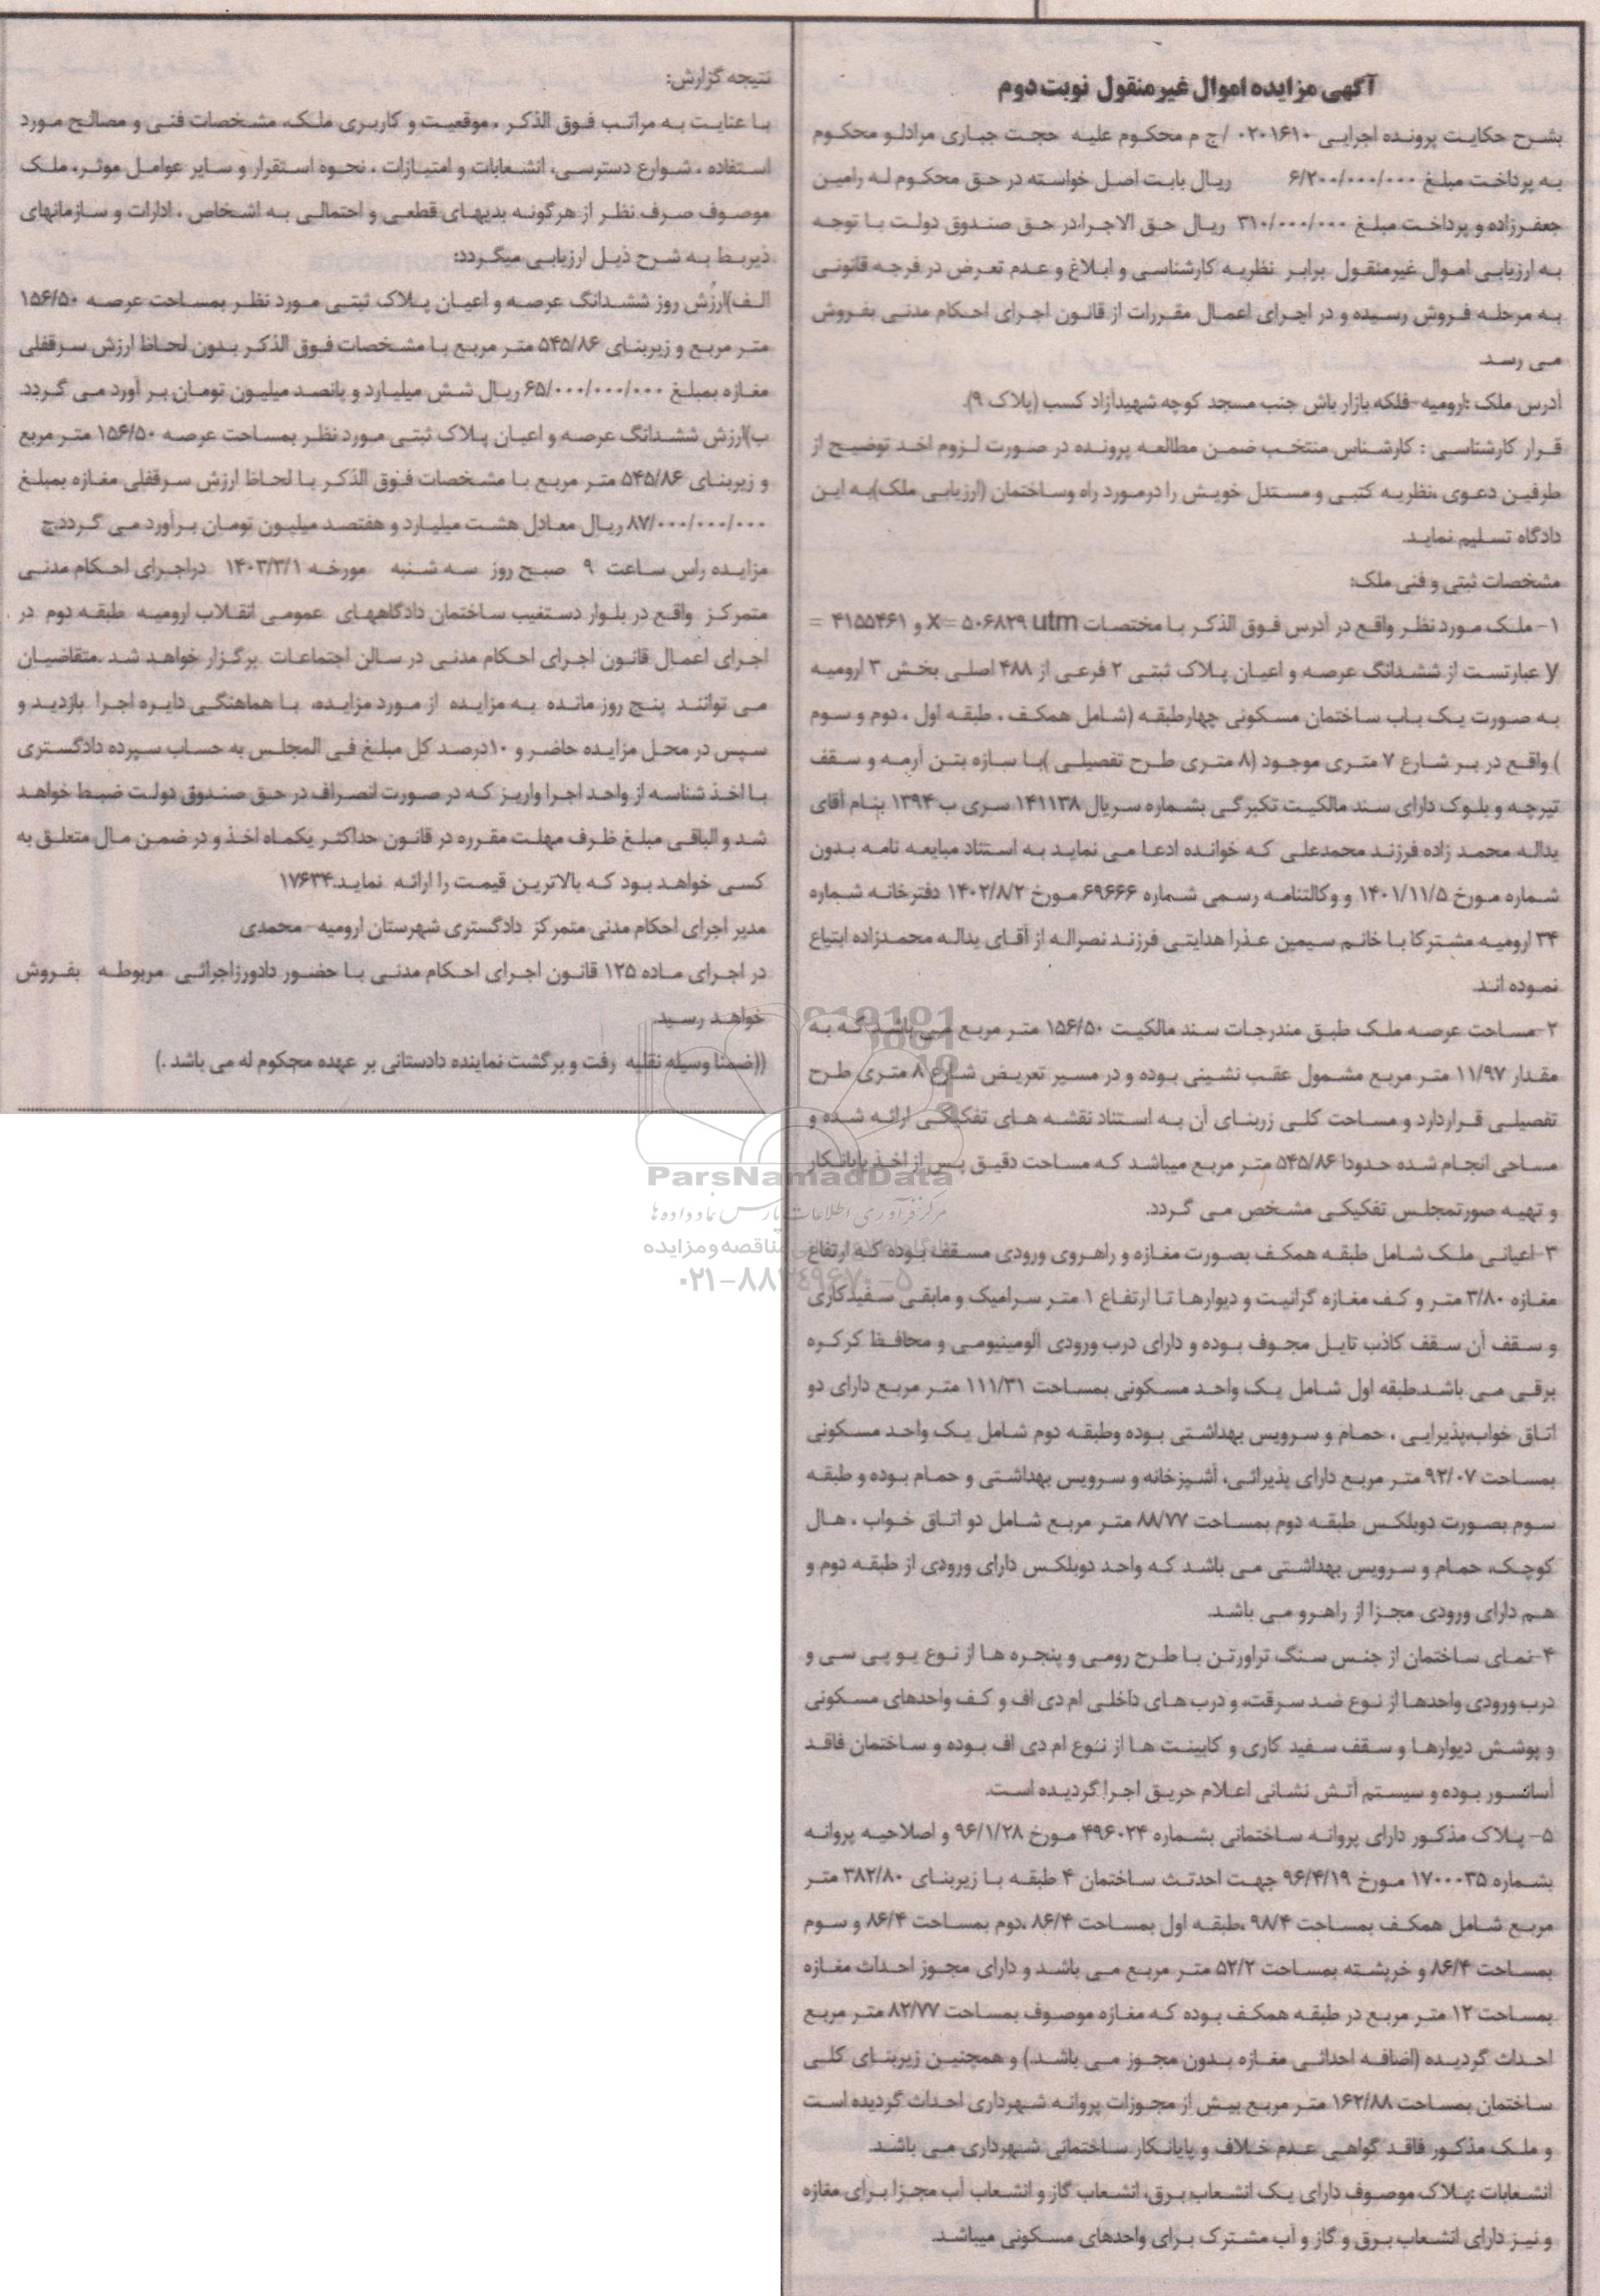 آگهی مزایده اموال غیرمنقول نوبت دوم
بشرح حکایت پرونده اجرایی ۰۲۰۱۶۱۰ /ج م محکوم علیه حجت جباری مرادلو محکوم
به پرداخت مبلغ ۶/۲۰۰/۰۰۰/۰۰۰ ریال بابت اصل خواسته در حق محکوم له رامین
جعفرزاده و پرداخت مبلغ ۳۱۰/۰۰۰/۰۰۰ ریال حق الاجرا،در حق صندوق دولت با توجه
به ارزیابی اموال غیرمنقول برابر نظریه کارشناسی و ابلاغ و عدم تعرض در فرجه قانونی
به مرحله فروش رسیده و در اجرای اعمال مقررات از قانون اجرای احکام مدنی بفروش
می رسد.
آدرس ملک :ارومیه-فلکه بازار باش جنب مسجد کوچه شهیدآزاد کسب (پلاک ۹).
قرار کارشناسی : کارشناس منتخب ضمن مطالعه پرونده در صورت لزوم اخد توضیح از
طرفین دعوی ،نظریه کتبی و مستدل خویش را درمورد راه وساختمان (ارزیابی ملک)به این
دادگاه تسلیم نماید.
مشخصات ثبتی و فنی ملک:
۱- ملک مورد نظر واقع در آدرس فوق الذکر با مختصات x= ۵۰۶۸۲۹ utm و ۴۱۵۵۴۶۱ =
y عبارتست از ششدانگ عرصه و اعیان پلاک ثبتی ۲ فرعی از ۴۸۸ اصلی بخش ۳ ارومیه
به صورت یک باب ساختمان مسکونی چهارطبقه (شامل همکف ، طبقه اول ، دوم و سوم
) واقع در بر شارع ۷ متری موجود (۸ متری طرح تفصیلی )با سازه بتن آرمه و سقف
تیرچه و بلوک دارای سند مالکیت تکبرگی بشماره سریال ۱۴۱۱۳۸ سری ب ۱۳۹۴ بنام آقای
یداله محمد زاده فرزند محمدعلی که خوانده ادعا می نماید به استناد مبایعه نامه بدون
شماره مورخ ۱۴۰۱/۱۱/۵ و وکالتنامه رسمی شماره ۶۹۶۶۶ مورخ ۱۴۰۲/۸/۲ دفترخانه شماره
۳۴ ارومیه مشترکا با خانم سیمین عذرا هدایتی فرزند نصراله از آقای یداله محمدزاده ابتیاع
نموده اند.
۲-مساحت عرصه ملک طبق مندرجات سند مالکیت ۱۵۶/۵۰ متر مربع می باشد که به
مقدار ۱۱/۹۷ متر مربع مشمول عقب نشینی بوده و در مسیر تعریض شارع ۸ متری طرح
تفصیلی قراردارد و مساحت کلی زربنای آن به استناد نقشه های تفکیکی ارائه شده و
مساحی انجام شده حدودا ۵۴۵/۸۶ متر مربع میباشد که مساحت دقیق پس از اخذ پایانکار
و تهیه صورتمجلس تفکیکی مشخص می گردد.
۳-اعیانی ملک شامل طبقه همکف بصورت مغازه و راهروی ورودی مسقف بوده که ارتفاع
مغازه ۳/۸۰ متر و کف مغازه گرانیت و دیوارها تا ارتفاع ۱ متر سرامیک و مابقی سفیدکاری
و سقف آن سقف کاذب تایل مجوف بوده و دارای درب ورودی آلومینیومی و محافظ کرکره
برقی می باشد.طبقه اول شامل یک واحد مسکونی بمساحت ۱۱۱/۳۱ متر مربع دارای دو
اتاق خواب،پذیرایی ، حمام و سرویس بهداشتی بوده وطبقه دوم شامل یک واحد مسکونی
بمساحت ۹۳/۰۷ متر مربع دارای پذیرائی، آشپزخانه و سرویس بهداشتی و حمام بوده و طبقه
سوم بصورت دوبلکس طبقه دوم بمساحت ۸۸/۷۷ متر مربع شامل دو اتاق خواب ، هال
کوچک، حمام و سرویس بهداشتی می باشد که واحد دوبلکس دارای ورودی از طبقه دوم و
هم دارای ورودی مجزا از راهرو می باشد.
۴-نمای ساختمان از جنس سنگ تراورتن با طرح رومی و پنجره ها از نوع یو پی سی و
درب ورودی واحدها از نوع ضد سرقت، و درب های داخلی ام دی اف و کف واحدهای مسکونی
و پوشش دیوارها و سقف سفید کاری و کابینت ها از نوع ام دی اف بوده و ساختمان فاقد
آسانسور بوده و سیستم آتش نشانی اعلام حریق اجرا گردیده است.
۵- پلاک مذکور دارای پروانه ساختمانی بشماره ۴۹۶۰۲۴ مورخ ۹۶/۱/۲۸ و اصلاحیه پروانه
بشماره ۱۷۰۰۰۳۵ مورخ ۹۶/۴/۱۹ جهت احدتث ساختمان ۴ طبقه با زیربنای ۳۸۲/۸۰ متر
مربع شامل همکف بمساحت ۹۸/۴ ،طبقه اول بمساحت ۸۶/۴ ،دوم بمساحت ۸۶/۴ و سوم
بمساحت ۸۶/۴ و خرپشته بمساحت ۵۲/۲ متر مربع می باشد و دارای مجوز احداث مغازه
بمساحت ۱۲ متر مربع در طبقه همکف بوده که مغازه موصوف بمساحت ۸۲/۷۷ متر مربع
احداث گردیده (اضافه احداثی مغازه بدون مجوز می باشد.) و همچنین زیربنای کلی
ساختمان بمساحت ۱۶۲/۸۸ متر مربع بیش از مجوزات پروانه شهرداری احداث گردیده است
و ملک مذکور فاقد گواهی عدم خلاف و پایانکار ساختمانی شهرداری می باشد.
انشعابات :پلاک موصوف دارای یک انشعاب برق، انشعاب گاز و انشعاب آب مجزا برای مغازه
و نیز دارای انشعاب برق و گاز و آب مشترک برای واحدهای مسکونی میباشد.
نتیجه گزارش:
با عنایت به مراتب فوق الذکر ، موقعیت و کاربری ملک، مشخصات فنی و مصالح مورد
استفاده ، شوارع دسترسی، انشعابات و امتیازات ، نحوه استقرار و سایر عوامل موثر، ملک
موصوف صرف نظر از هرگونه بدیهای قطعی و احتمالی به اشخاص ، ادارات و سازمانهای
ذیربط به شرح ذیل ارزیابی میگردد:
الف)ارزش روز ششدانگ عرصه و اعیان پلاک ثبتی مورد نظر بمساحت عرصه ۱۵۶/۵۰
متر مربع و زیربنای ۵۴۵/۸۶ متر مربع با مشخصات فوق الذکر بدون لحاظ ارزش سرقفلی
مغازه بمبلغ ۶۵/۰۰۰/۰۰۰/۰۰۰ ریال شش میلیارد و پانصد میلیون تومان بر آورد می گردد.
ب)ارزش ششدانگ عرصه و اعیان پلاک ثبتی مورد نظر بمساحت عرصه ۱۵۶/۵۰ متر مربع
و زیربنای ۵۴۵/۸۶ متر مربع با مشخصات فوق الذکر با لحاظ ارزش سرقفلی مغازه بمبلغ
۸۷/۰۰۰/۰۰۰/۰۰۰ ریال معادل هشت میلیارد و هفتصد میلیون تومان برآورد می گردد.چ
مزایده راس ساعت ۹ صبح روز سه شنبه مورخه ۱۴۰۳/۳/۱ دراجرای احکام مدنی
متمرکز واقع در بلوار دستغیب ساختمان دادگاههای عمومی انقلاب ارومیه طبقه دوم در
اجرای اعمال قانون اجرای احکام مدنی در سالن اجتماعات برگزار خواهد شد .متقاضیان
می توانند پنج روز مانده به مزایده از مورد مزایده، با هماهنگی دایره اجرا بازدید و
سپس در محل مزایده حاضر و ۱۰درصد کل مبلغ فی المجلس به حساب سپرده دادگستری
با اخذ شناسه از واحد اجرا واریز که در صورت انصراف در حق صندوق دولت ضبط خواهد
شد و الباقی مبلغ ظرف مهلت مقرره در قانون حداکثر یکماه اخذ و در ضمن مال متعلق به
کسی خواهد بود که بالاترین قیمت را ارائه نماید.۱۷۶۳۴
مدیر اجرای احکام مدنی متمرکز دادگستری شهرستان ارومیه- محمدی
در اجرای ماده ۱۲۵ قانون اجرای احکام مدنی با حضور دادورزاجرائی مربوطه بفروش
خواهد رسید.
((ضمنا وسیله نقلیه رفت و برگشت نماینده دادستانی بر عهده محکوم له می باشد .)
ParsNamadData
مرکز فرآوری اطلاعات پارس نماد داده ها
مناقصه و مزایده
۰۲۱-۸۸۳۴۹۶۷۰-۵